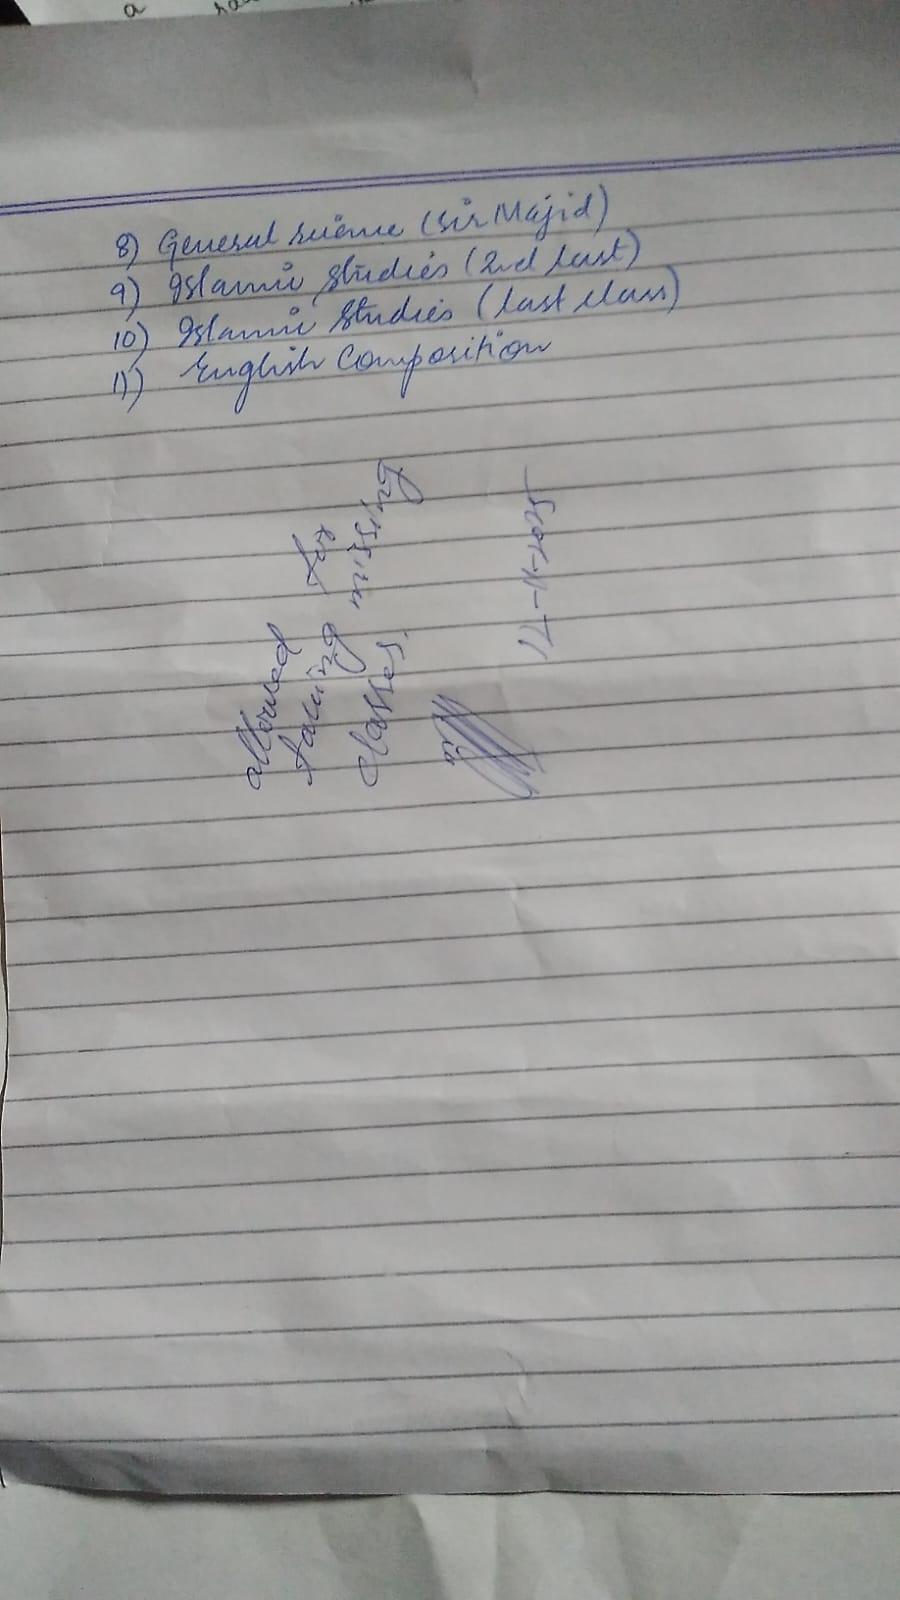 8) General Science (Sir Majid)
9) Islamic Studies (2nd last)
10) Islamic Studies (last class)
11) English Composition
allowed for
taking missing
classes.
17-11-2025
a